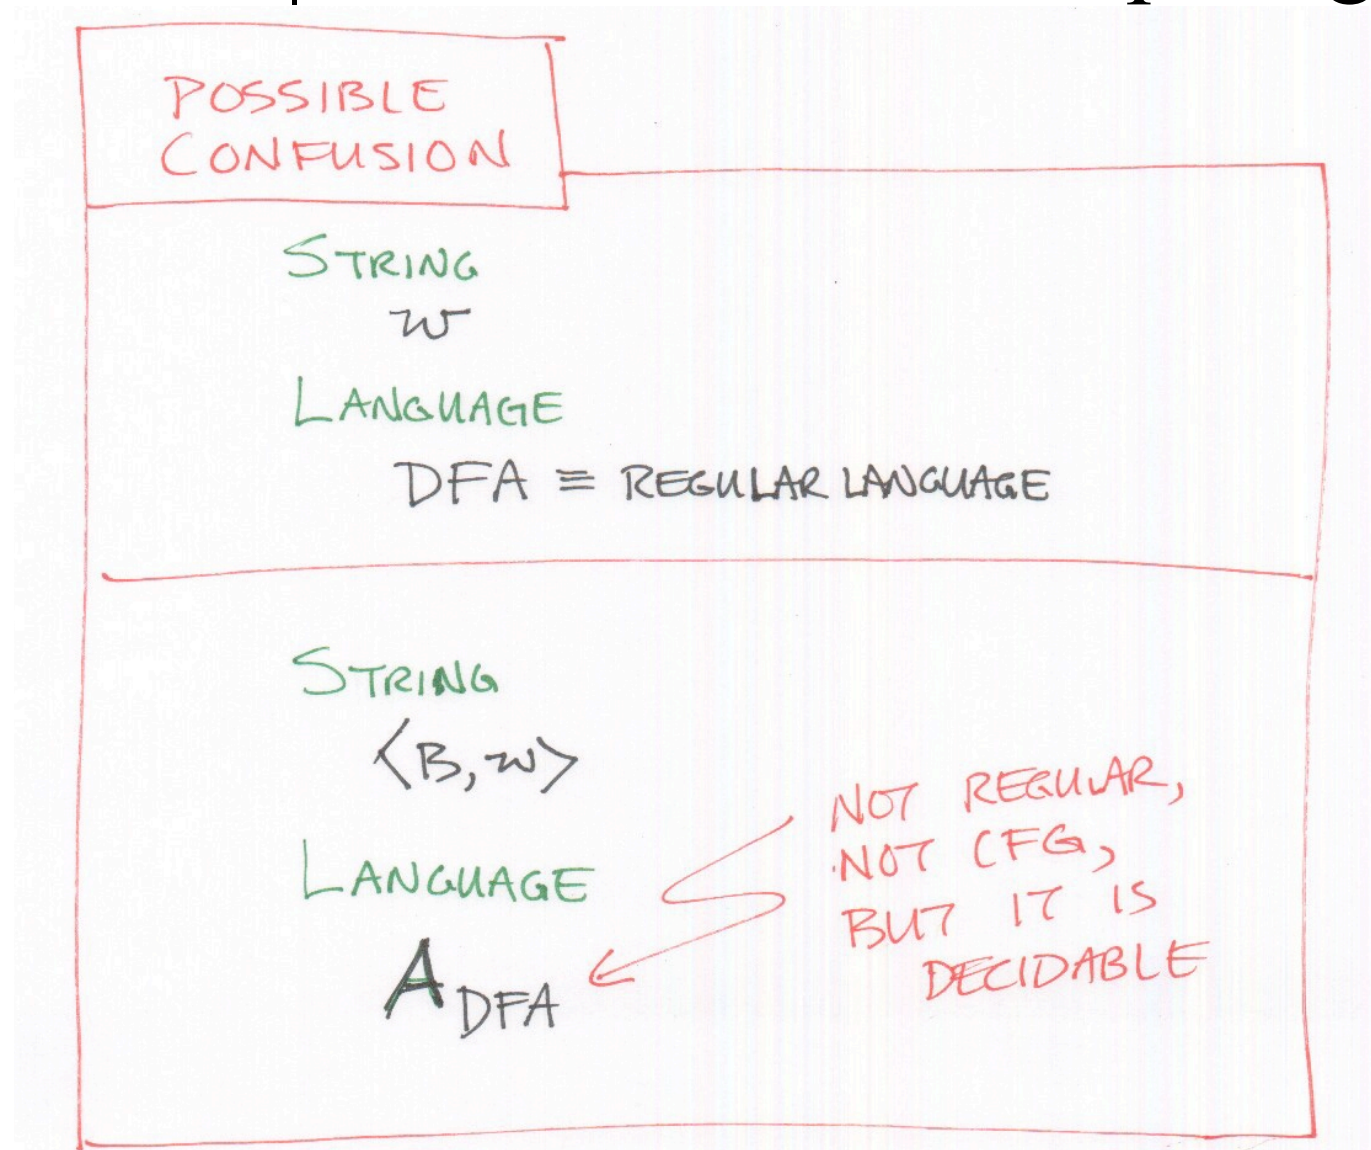 POSSIBLE
CONFUSION
STRING
w
LANGUAGE
DFA ≡ REGULAR LANGUAGE
STRING
⟨B, w⟩
LANGUAGE
A DFA
NOT REGULAR,
NOT CFG,
BUT IT IS
DECIDABLE